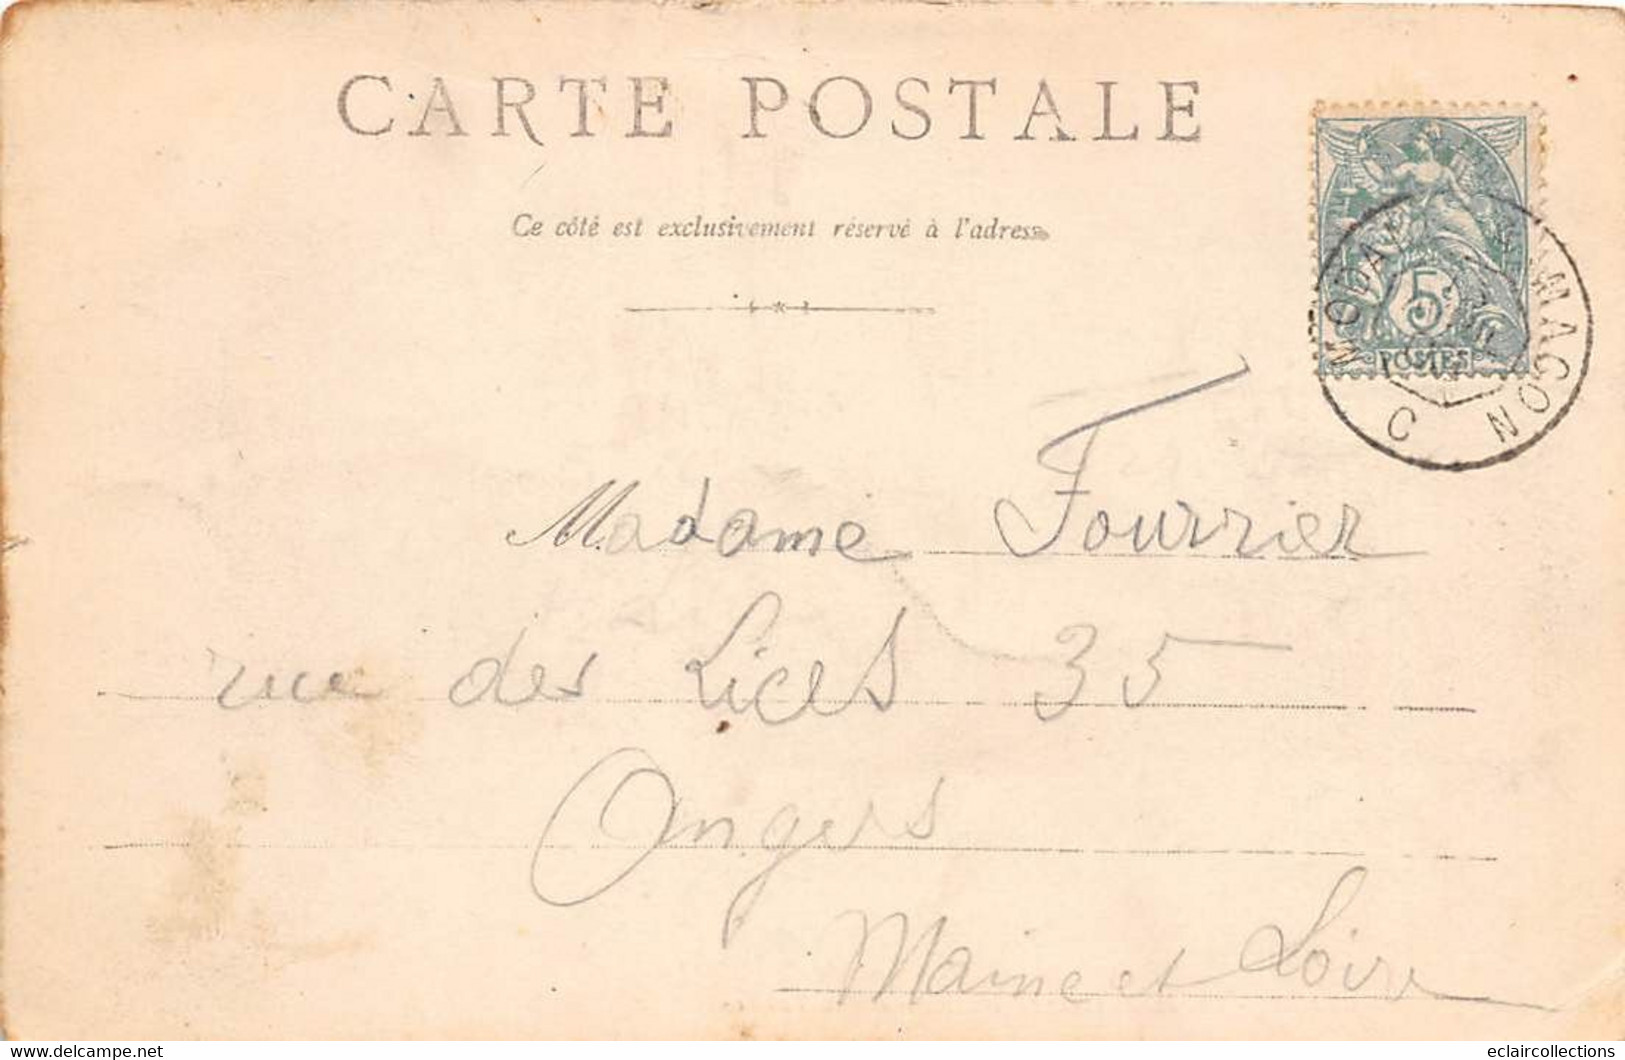 CARTE POSTALE
Ce côté est exclusivement réservé à l'adresse
5
POSTES
MODANE MACON
C
Madame Fourrier
rue des Lices 35
Angers
Maine et Loire
www.delcampe.net
eclaircollections